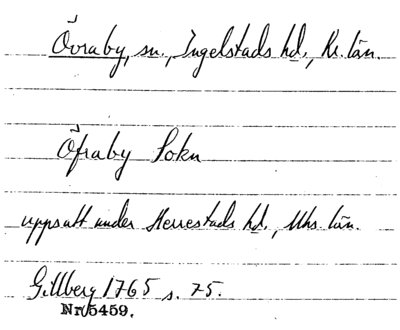 Övraby, sn., Ingelstads hd., Kr. län.
Öfraby Sokn
uppsatt under Herrestads hd., Mhs. län.
Gillberg 1765 s. 75.
Nr 5459.